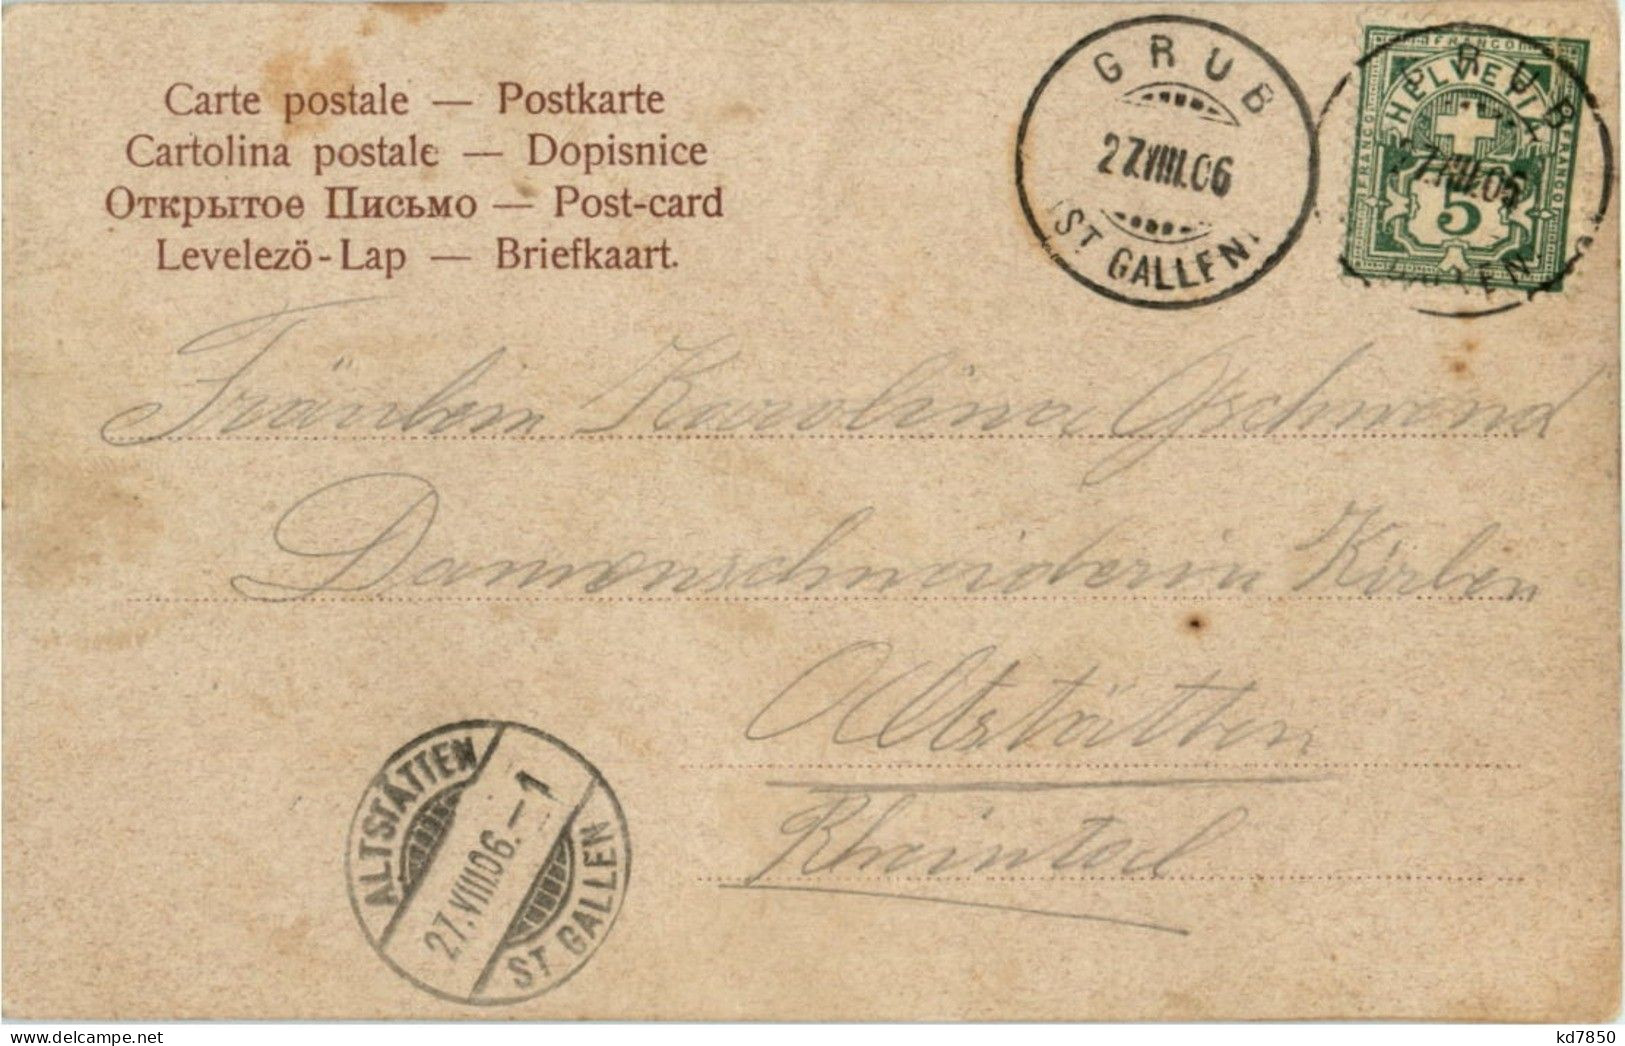 Carte postale — Postkarte
Cartolina postale — Dopisnice
Открытое Письмо — Post-card
Levelezö-Lap — Briefkaart.
GRUB
27.VIII.06
(ST GALLEN)
FRANCO
HELVETIA
FRANCO
FRANCO
5
RUB
7.VIII.06
LLEN
Fräulein Karolina Gschwend
Damenschneiderin Kirlen
Altstätten
Rheintal
ALTSTÄTTEN
27.VIII.06.–1
ST GALLEN
delcampe.net
kd7850